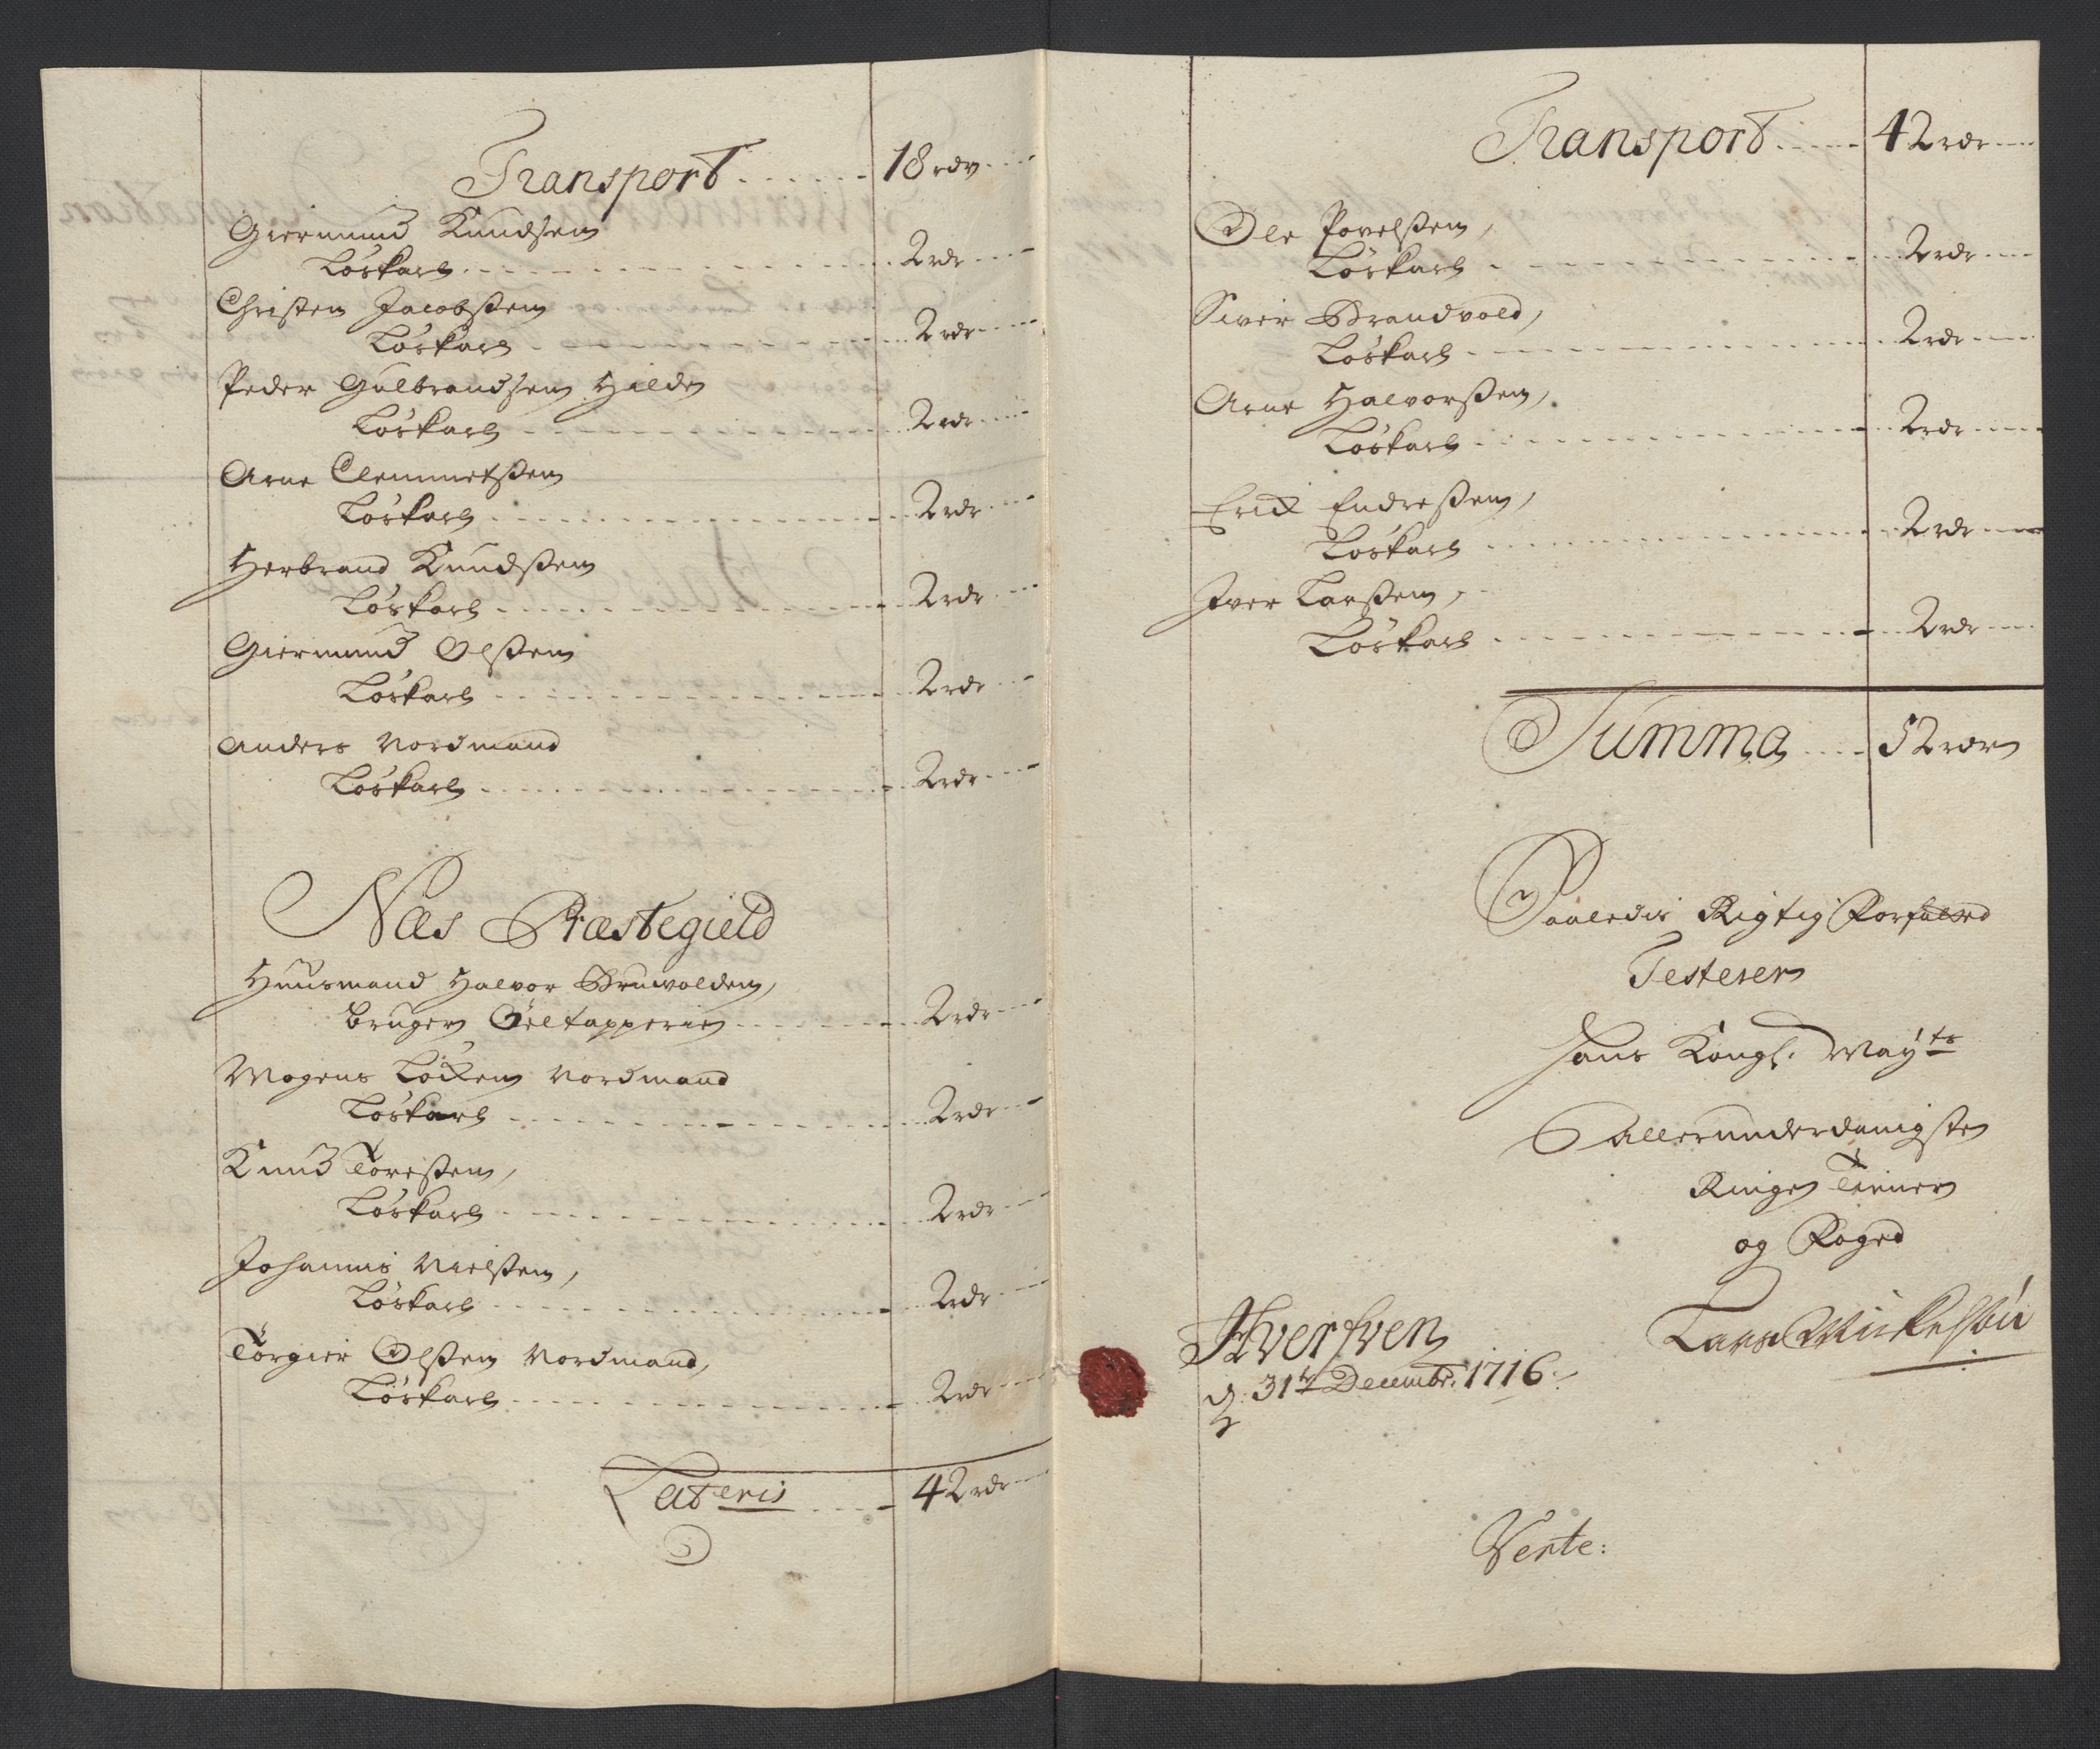 Transport 18 rdr
Giermund Knudsen
Löskarl 2 rdr
Christen Jacobsen
Löskarl 2 rdr
Peder Gulbrandsen Hilde
Löskarl 2 rdr
Arne Clemmetsen
Löskarl 2 rdr
Herbrand Knudsen
Löskarl 2 rdr
Giermund Olsen
Löskarl 2 rdr
Anders Nordmand
Löskarl 2 rdr
Næs Præstegield
Huusmand Halvor Bruvolden,
bruger Öeltapperie 2 rdr
Mogens Löcken Nordmand
Löskarl 2 rdr
Knud Toresen,
Löskarl 2 rdr
Johannis Nielsen,
Löskarl 2 rdr
Torgier Olsen Nordmand,
Löskarl 2 rdr
Lateris 42 rdr
Transport 42 rdr
Ole Povelsen,
Löskarl 2 rdr
Siver Brandvold,
Löskarl 2 rdr
Arne Halvorsen,
Löskarl 2 rdr
Erick Endresen,
Löskarl 2 rdr
Iver Larsen,
Löskarl 2 rdr
Summa 52 rdr
Saaledis Rigtig Forfatted
Testerer
Hans Kongl. Mayts
Allerunderdanigste
Ringe Tiener
og Foged
Lars Mickelsön
Hversven
d. 31te Decembr. 1716.
Verte: